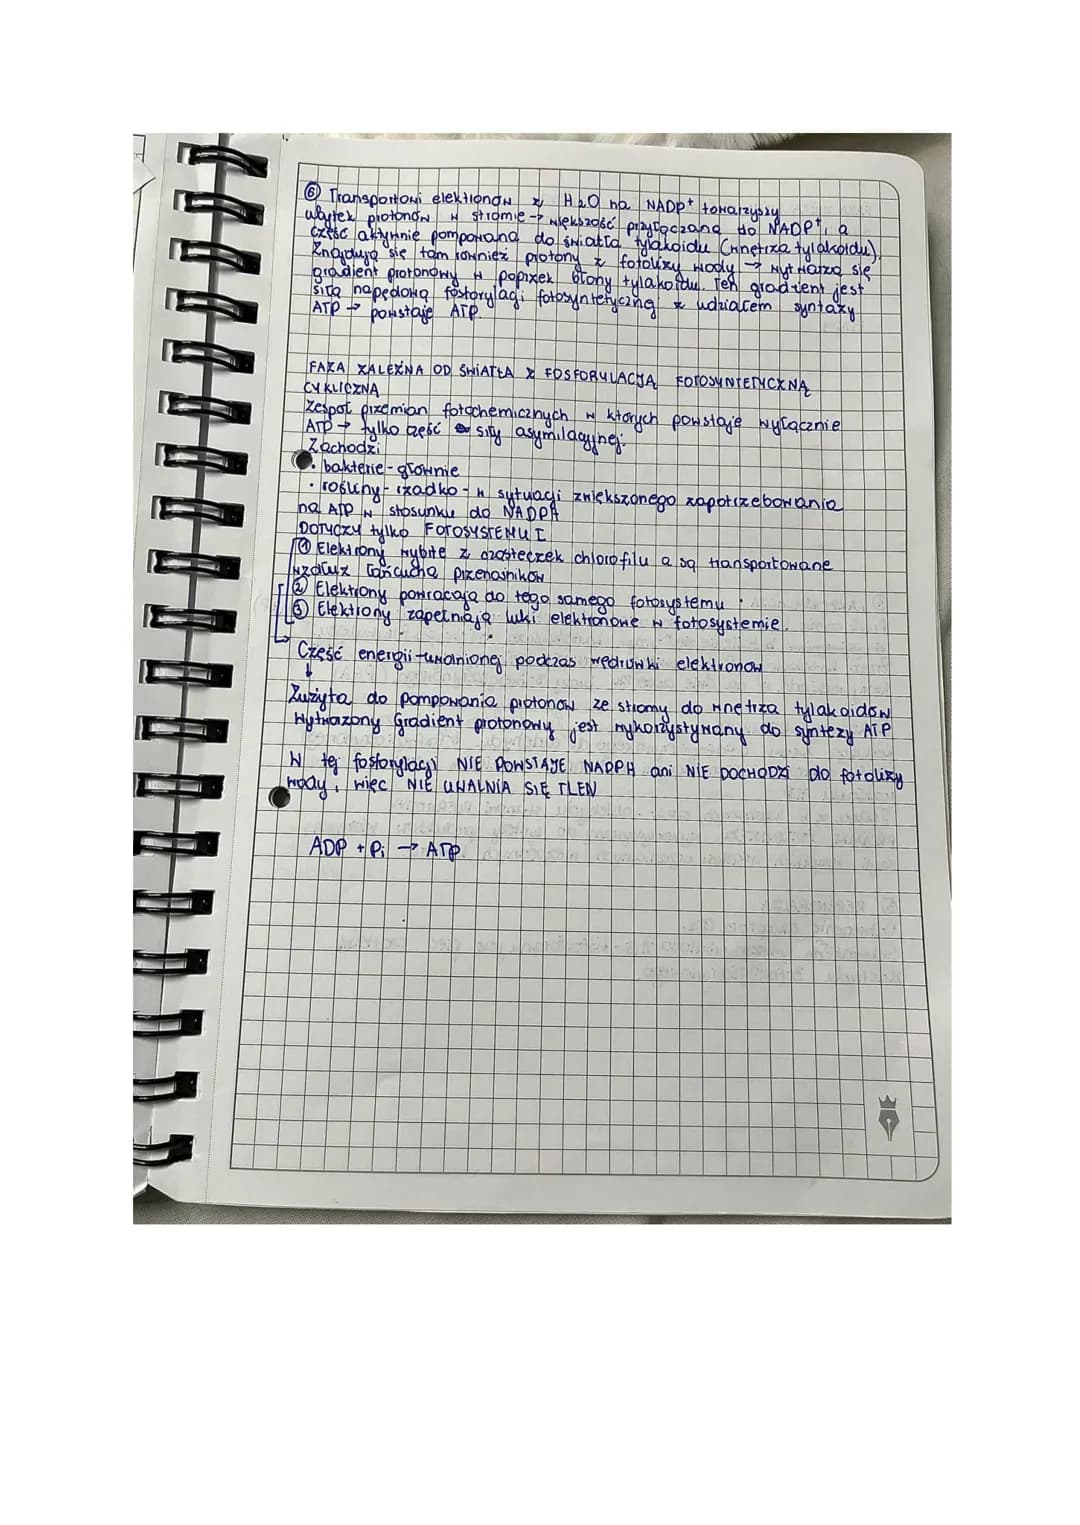 ⑥ Transportowi elektronów z H₂O na NADP⁺ towarzyszy
ubytek protonów w stromie → większość przyłączana do NADP⁺, a
część aktywnie pompowana do światła tylakoidu (wnętrza tylakoidu).
Znajdują się tam również protony z fotolizy wody → wytwarza się
gradient protonowy w poprzek błony tylakoidu. Ten gradient jest
siłą napędową fosforylacji fotosyntetycznej z udziałem syntazy
ATP → powstaje ATP.
FAZA ZALEŻNA OD ŚWIATŁA Z FOSFORYLACJĄ FOTOSYNTETYCZNĄ
CYKLICZNĄ
Zespół przemian fotochemicznych w których powstaje wyłącznie
ATP → tylko część siły asymilacyjnej.
Zachodzi
• bakterie - głównie
• rośliny - rzadko - w sytuacji zwiększonego zapotrzebowania
na ATP w stosunku do NADPH
DOTYCZY tylko FOTOSYSTEMU I
① Elektrony wybite z cząsteczek chlorofilu a są transportowane
wzdłuż łańcucha przenośników
② Elektrony powracają do tego samego fotosystemu
③ Elektrony zapełniają luki elektronowe w fotosystemie.
Część energii uwolnionej podczas wędrówki elektronów
↓
Zużyta do pompowania protonów ze stromy do wnętrza tylakoidów
Wytwarzony Gradient protonowy jest wykorzystywany do syntezy ATP
W tej fosforylacji NIE POWSTAJE NADPH ani NIE DOCHODZI do fotolizy
wody, więc NIE UWALNIA SIĘ TLEN
ADP + Pi → ATP